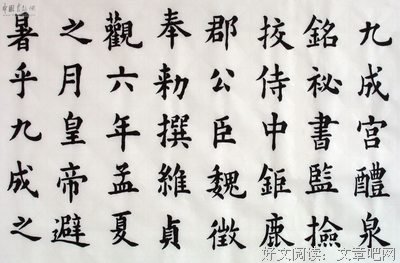 九成宮醴泉
銘祕書監撿
挍侍中鉅鹿
郡公臣魏徵
奉勅撰維貞
觀六年孟夏
之月皇帝避
暑乎九成之
好文阅读：文章吧网